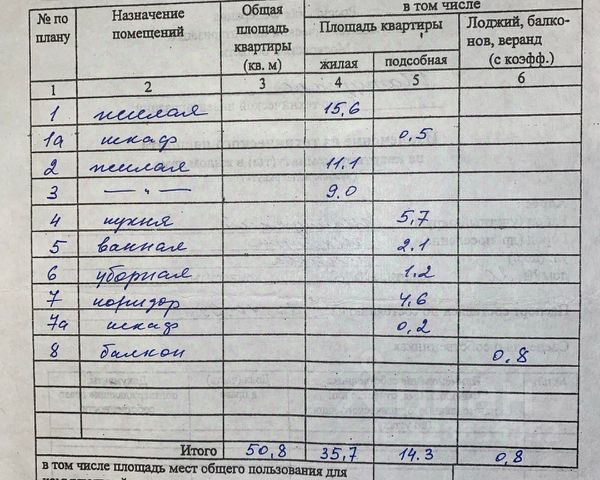 в том числе
№ по плану | Назначение помещений | Общая площадь квартиры (кв. м) | Площадь квартиры | Лоджий, балко-нов, веранд (с коэфф.)
жилая | подсобная
1 | 2 | 3 | 4 | 5 | 6
1 жилая 15,6
1а шкаф 0,5
2 жилая 11.1
3 —〃— 9.0
4 кухня 5,7
5 ванная 2.1
6 уборная 1.2
7 коридор 4,6
7а шкаф 0,2
8 балкон 0,8
Итого 50,8 35,7 14.3 0,8
в том числе площадь мест общего пользования для